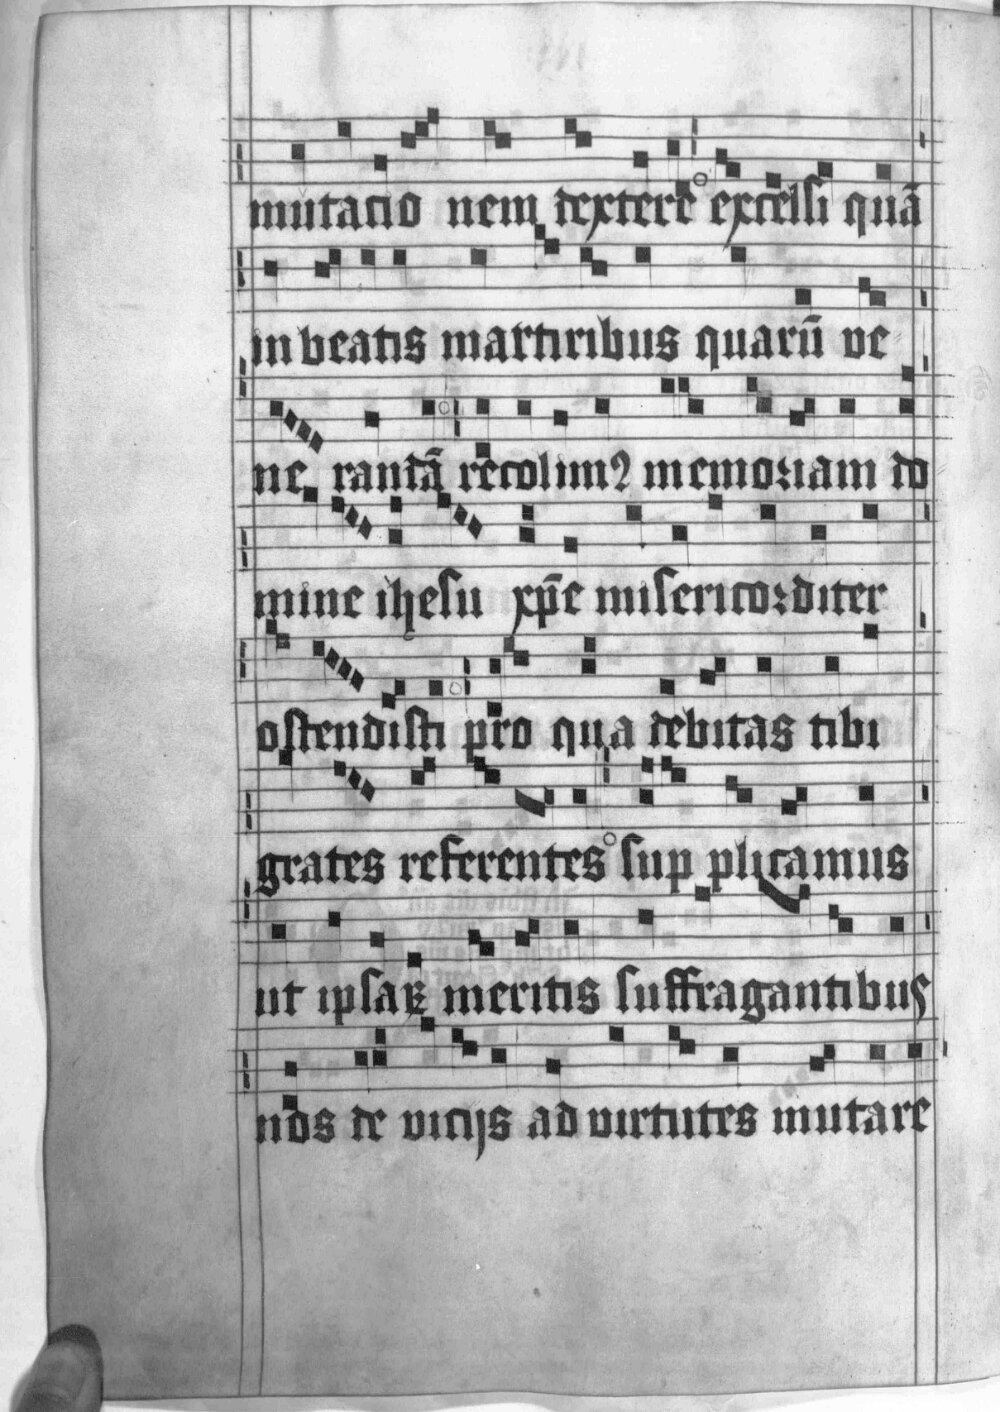 mutatio nem dextere excelsi quā
in beatis martiribus quarū ve
ne randā recolimꝰ memoriam do
mine ihesu xp̄e misericorditer
ostendisti pro qua debitas tibi
grates referentes sup plicamus
ut ipsaꝝ meritis suffragantibus
nos de vicijs ad virtutes mutare